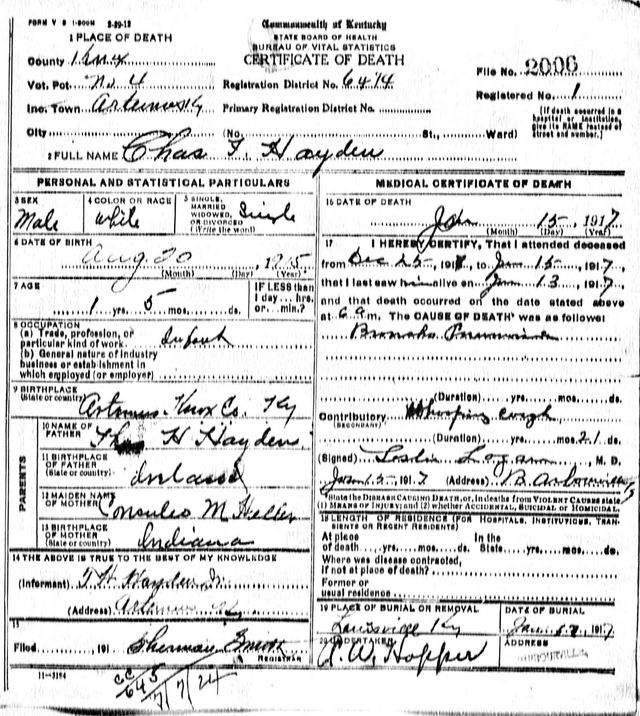 FORM V S 1-500M 3-29-12
Commonwealth of Kentucky
STATE BOARD OF HEALTH
BUREAU OF VITAL STATISTICS
CERTIFICATE OF DEATH
1 PLACE OF DEATH
County Knox
Vot. Pct. No. 4
Inc. Town Artemus Ky
City
Registration District No. 6474
Primary Registration District No.
File No. 2006
Registered No. 1
(No. St., Ward)
[If death occurred in a hospital or institution, give its NAME instead of street and number.]
2 FULL NAME Chas T. Hayden
PERSONAL AND STATISTICAL PARTICULARS
3 SEX Male
4 COLOR OR RACE White
5 SINGLE, MARRIED WIDOWED, OR DIVORCED (Write the word) Single
6 DATE OF BIRTH
Aug 20, 1915
(Month) (Day) (Year)
7 AGE
1 yrs. 5 mos. ds.
IF LESS than 1 day... hrs. or... min.?
8 OCCUPATION
(a) Trade, profession, or particular kind of work. Infant
(b) General nature of industry business or establishment in which employed (or employer)
9 BIRTHPLACE
(State or country) Artemus Knox Co. Ky
PARENTS
10 NAME OF FATHER H Hayden
11 BIRTHPLACE OF FATHER (State or country)
12 MAIDEN NAME OF MOTHER M
13 BIRTHPLACE OF MOTHER (State or country) Indiana
14 THE ABOVE IS TRUE TO THE BEST OF MY KNOWLEDGE
(Informant) T H Hayden Jr.
(Address) Artemus Ky
15
Filed, 191 Sherman Smith
REGISTRAR
11-3184
7/7/24
MEDICAL CERTIFICATE OF DEATH
16 DATE OF DEATH
Jan 15, 1917
(Month) (Day) (Year)
17 I HEREBY CERTIFY, That I attended deceased
from Dec 25, 191, to Jan 15, 1917,
that I last saw him alive on Jan 13, 1917,
and that death occurred on the date stated above
at 6 a m. The CAUSE OF DEATH was as follows:
Broncho Pneumonia
(Duration) yrs. mos. ds.
Contributory Whooping cough
(SECONDARY)
(Duration) yrs. mos. 21 ds.
(Signed) Leslie Logan, M. D.
Jan 15, 1917 (Address) Barbourville Ky
[State the DISEASE CAUSING DEATH, or, in deaths from VIOLENT CAUSES state (1) MEANS OF INJURY; and (2) whether ACCIDENTAL, SUICIDAL or HOMICIDAL.
18 LENGTH OF RESIDENCE (FOR HOSPITALS, INSTITUTIONS, TRANSIENTS OR RECENT RESIDENTS)
At place of death yrs. mos. ds. In the State yrs. mos. ds.
Where was disease contracted, if not at place of death?
Former or usual residence
19 PLACE OF BURIAL OR REMOVAL
Louisville Ky
DATE OF BURIAL
Jan. 17, 1917
20 UNDERTAKER
A. W. Hopper
ADDRESS